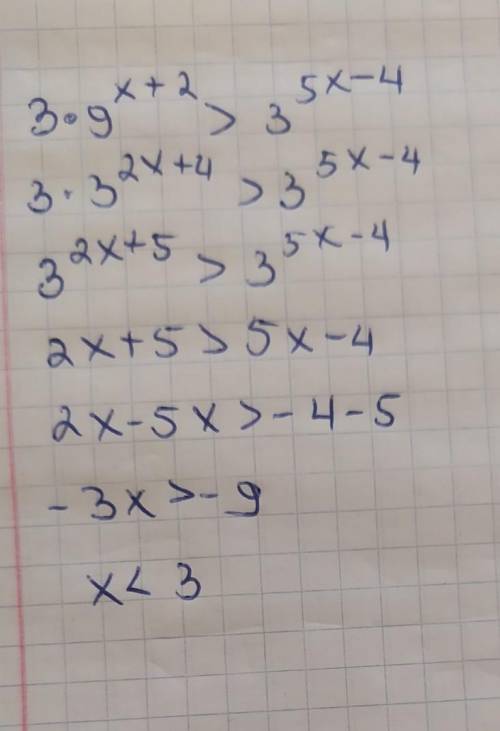 3·9^{x+2} > 3^{5x-4}
3·3^{2x+4} > 3^{5x-4}
3^{2x+5} > 3^{5x-4}
2x+5 > 5x-4
2x-5x > -4-5
-3x > -9
x < 3